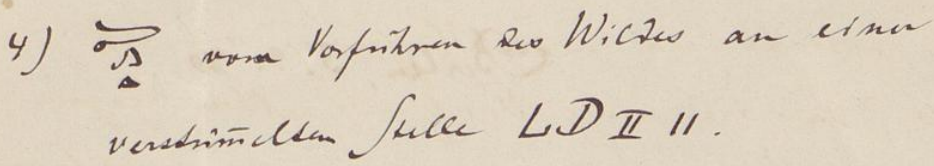 4) vom Vorführen des Wildes an einer
verstüm̄elten Stelle LD II 11.